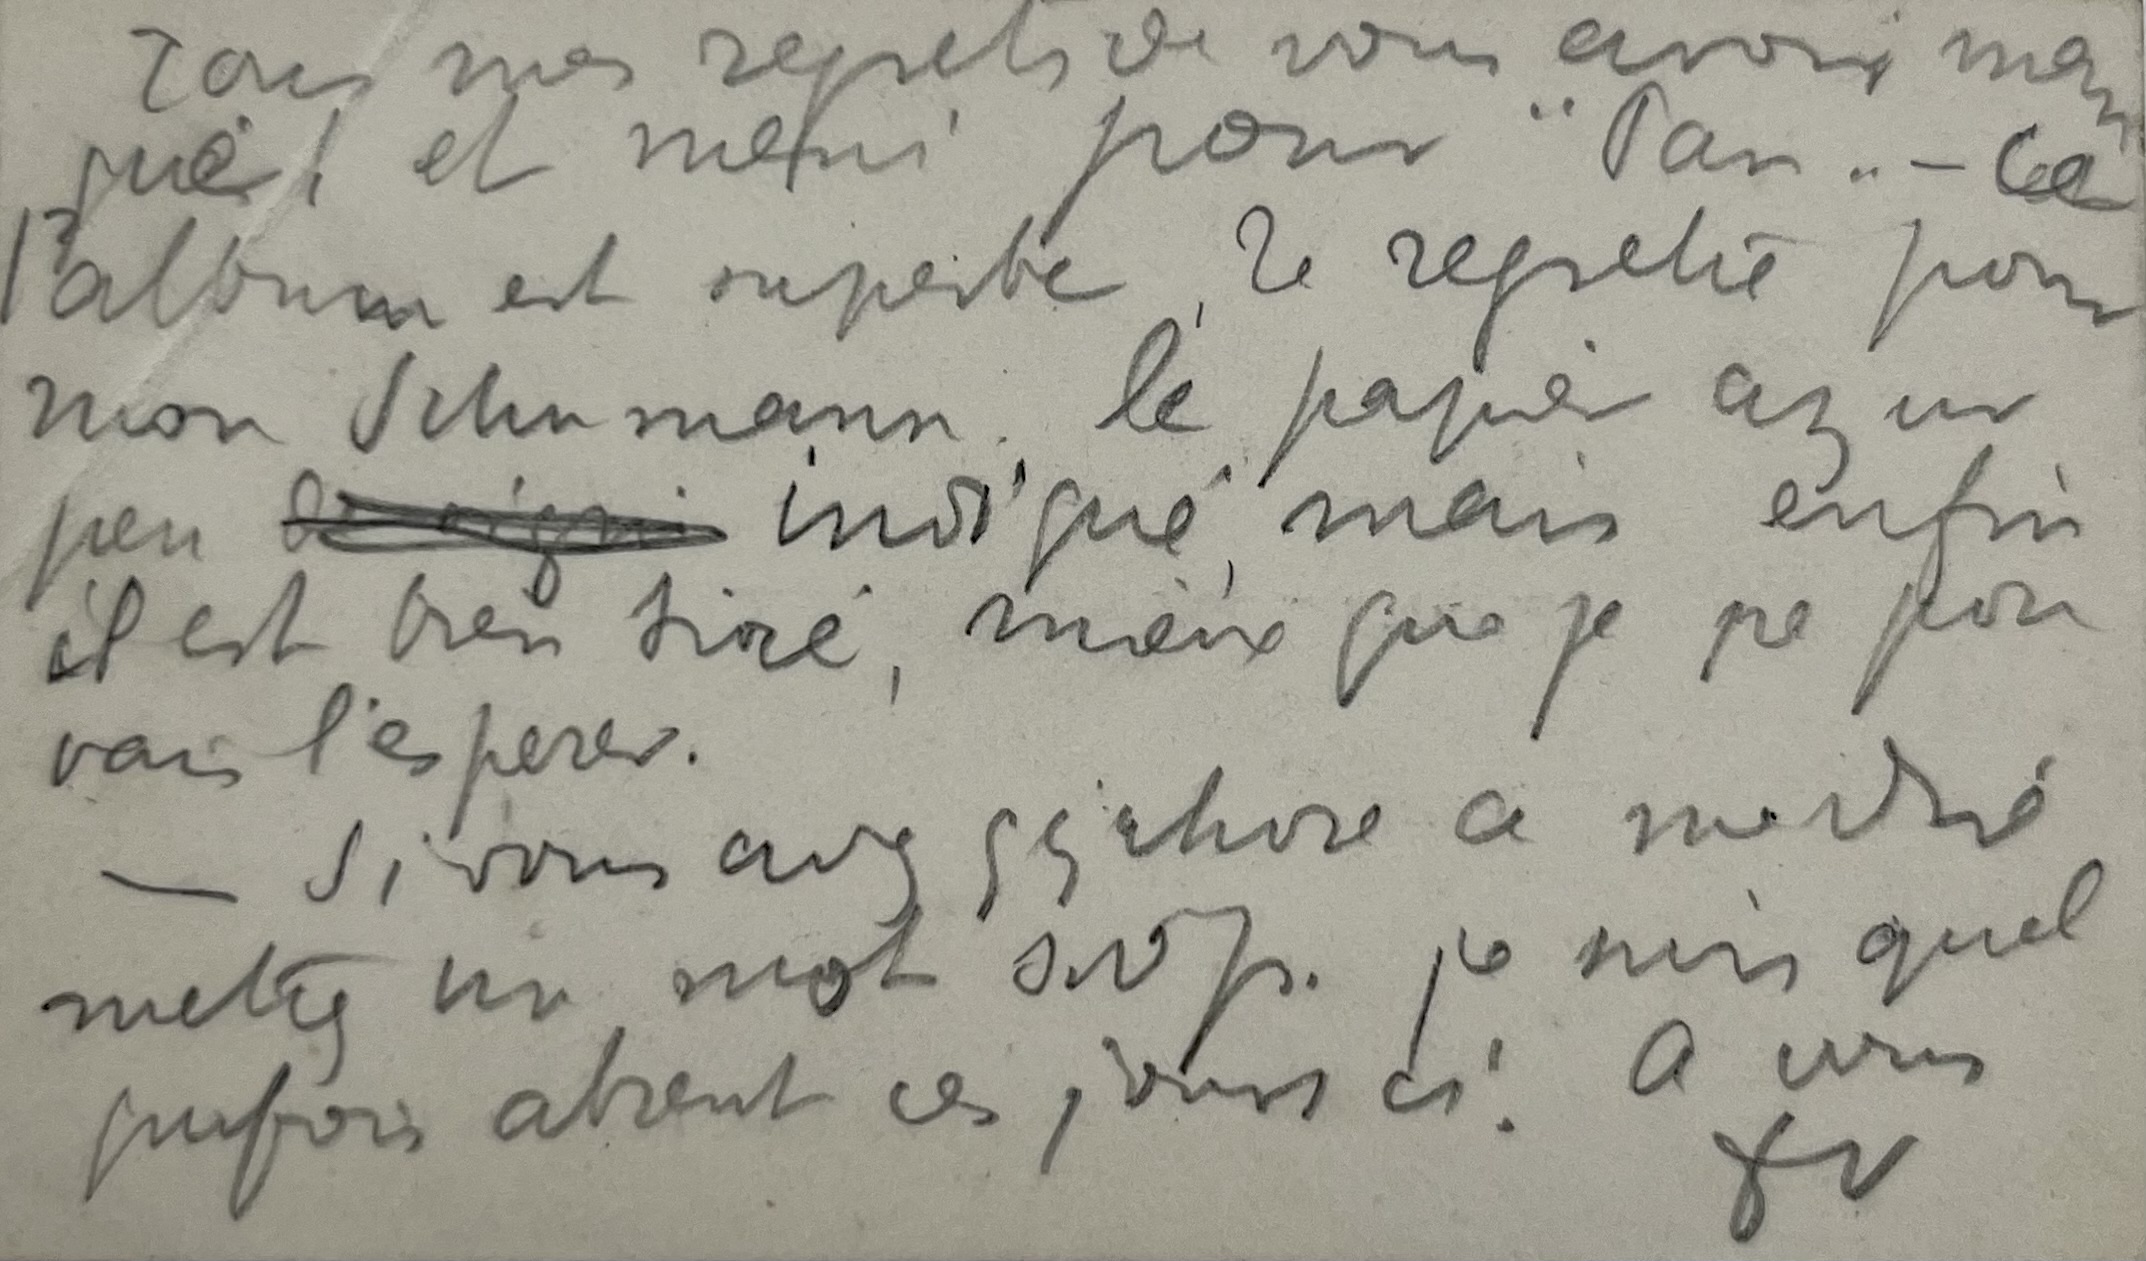 Tous mes regrets de vous avoir man
qué ! et merci pour "Pan" – 
l'album est superbe, je regrette pour
mon Schumann. le papier azur
peu indiqué, mais enfin
il est bien tiré, mieux que je ne pou
vais l'esperer.
— Si vous avez qq chose a me dire
mettez un mot svp. je suis quel
quefois absent ces jours ci. A vous